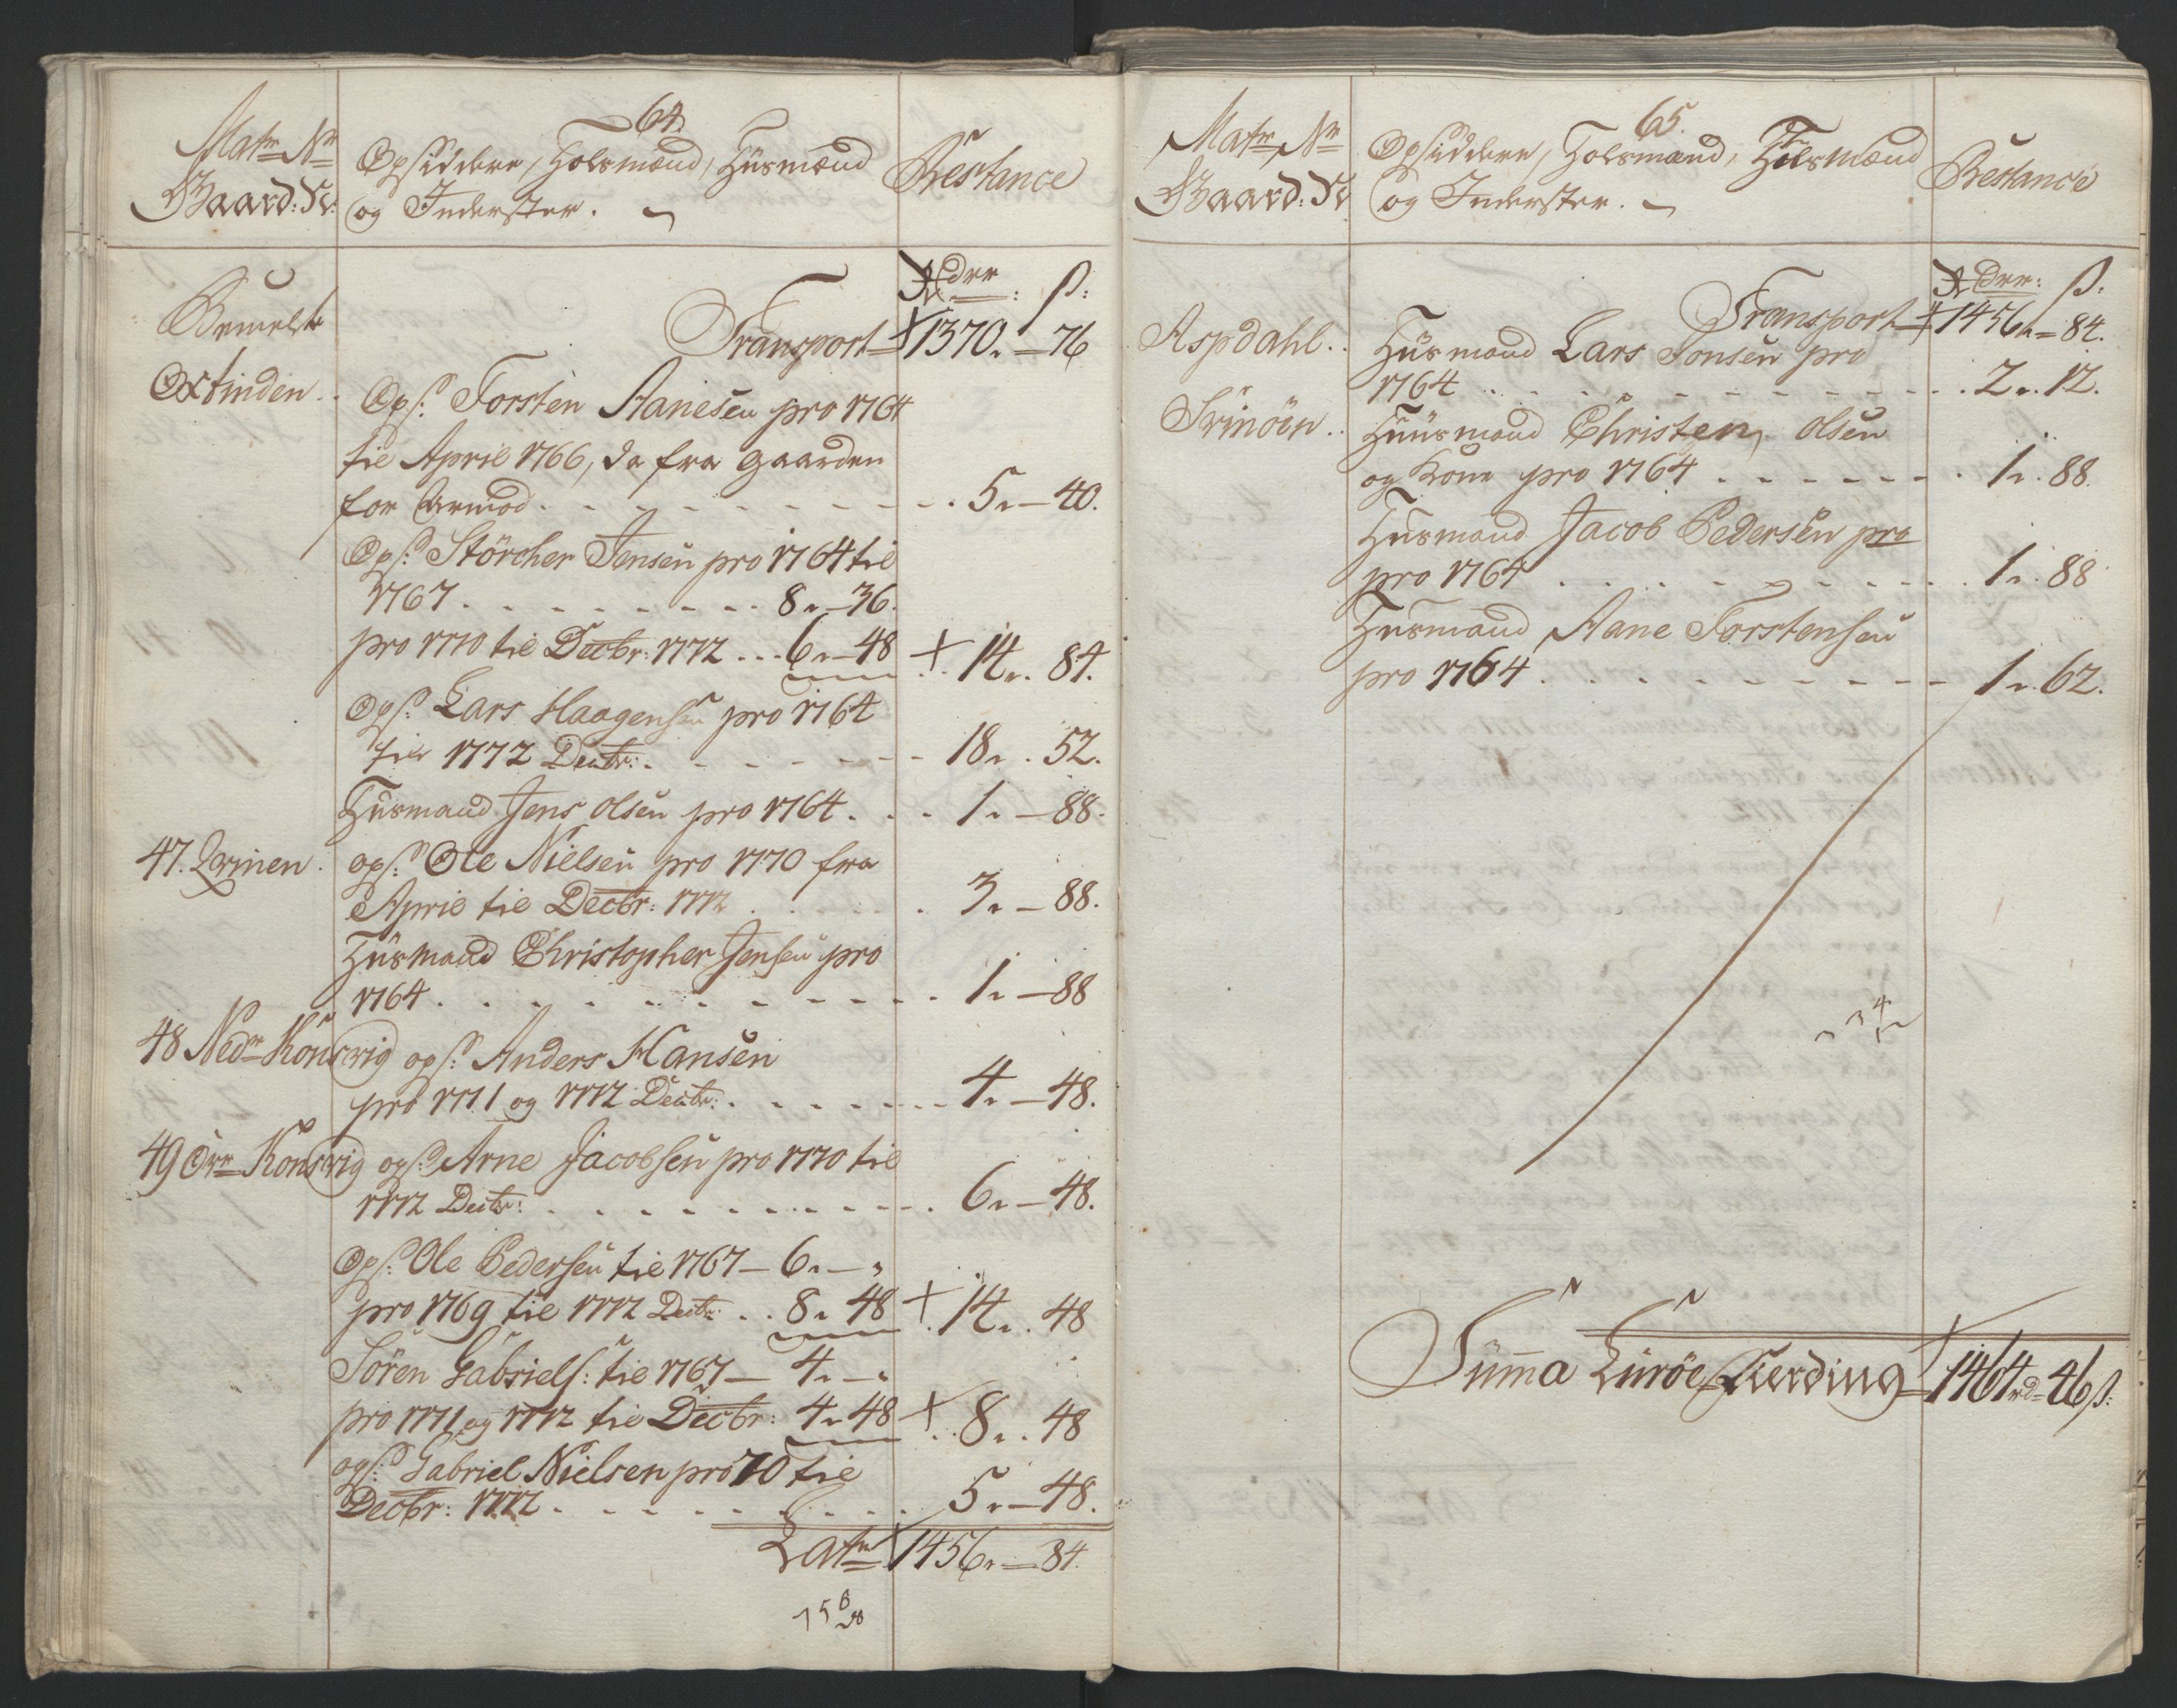 64.
Matr Nr
Gaard: Nr:
Opsiddere, Holsmænd, Husmænd
og Inderster.
Restance
Rdrr: ß:
Bemelte
Transport 1370. - 76
Oxtinden.
Ops: Torsten Aanesen pro 1764
til April 1766, da fra gaarden
for Armod. 5. - 40.
Ops: Störcher Jensen pro 1764 til
1767. 8. - 36.
pro 1770 til Decbr: 1772 .. 6. - 48 14. 84.
Ops: Lars Haagensen pro 1764
til 1772 Decbr: 18. 52.
Husmand Jens Olsen pro 1764. 1. - 88.
47. Qvinen.
ops: Ole Nielsen pro 1770 fra
April til Decbr: 1772 3. - 88.
Husmand Christopher Jensen pro
1764. 1. - 88
48 Nedr Konsvig ops: Anders Hansen
pro 1771 og 1772 Decbr: 4. - 48.
49 Övr Konsvig ops: Arne Jacobsen pro 1770 til
1772 Decbr: 6. - 48.
Ops: Ole Pedersen til 1767 - 6. - "
pro 1769 til 1772 Decbr: .. 8. 48 14. 48
Sören Gabriels: til 1767 - 4. - "
pro 1771 og 1772 til Decbr: 4. 48 8. 48
ops: Gabriel Nielsen pro 70 til
Decbr: 1772. 5. - 48.
Latr 1456. - 84.
65.
Matr Nr
Gaard: Nr
Opsiddere, Holsmænd, Husmænd
og Inderster.
Restance
Rdrr: ß.
Transport 1456. - 84.
Aspdahl..
Husmand Lars Tonsen pro
1764 2. 12.
Svinöen..
Huusmand Christen Olsen
og Kone pro 1764 1. 88.
Husmand Jacob Pedersen pro
pro 1764 1. 88
Husmand Aane Torstensen
pro 1764. 1. 62.
Summa Luröe Fierding 1464 rd 46 ß: